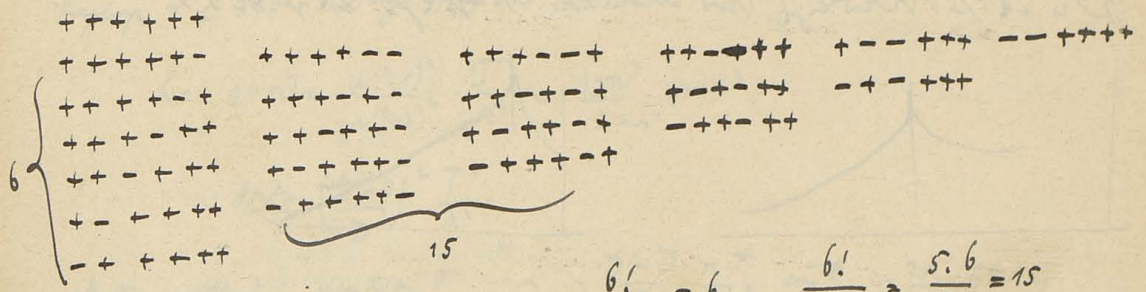 + + + + + +
+ + + + + - + + + + - - + + + - - + + + - - + + + - - + + + - - + + + +
+ + + + - + + + + - + - + + - + - + + - + - + + - + - + + +
+ + + - + + + + - + + - + - + + - + - + + - + +
+ + - + + + + - + + + - - + + + - +
+ - + + + + - + + + + -
- + + + + +
6
15
6! = 6 6! = 5.6 = 15